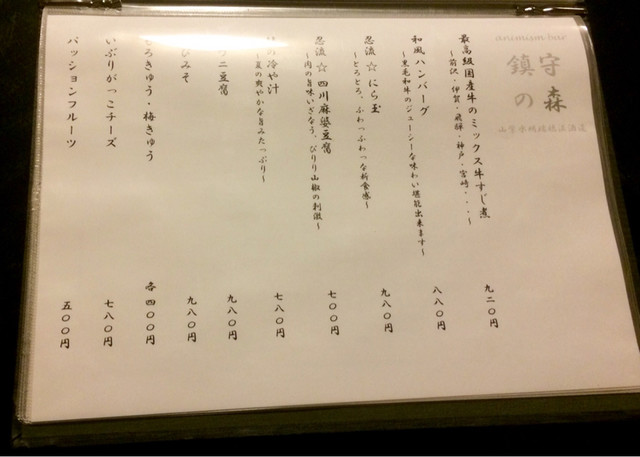 animism bar
鎮守
の森
最高級国産牛のミックス牛すじ煮 九二〇円
～前沢・伊賀・飛騨・神戸・宮崎・・・～
和風ハンバーグ 八八〇円
～黒毛和牛のジューシーな味わい堪能出来ます～
忍流☆にら玉 九八〇円
～とろとろ、ふわっふわっな新食感～
忍流☆四川麻婆豆腐 七〇〇円
～肉の旨味いざなう、ぴりり山椒の刺激～
の冷や汁 七八〇円
～夏の爽やかな旨みたっぷり～
ニ豆腐 九八〇円
びみそ 九八〇円
ろきゅう・梅きゅう 各四〇〇円
いぶりがっこチーズ 七八〇円
パッションフルーツ 五〇〇円